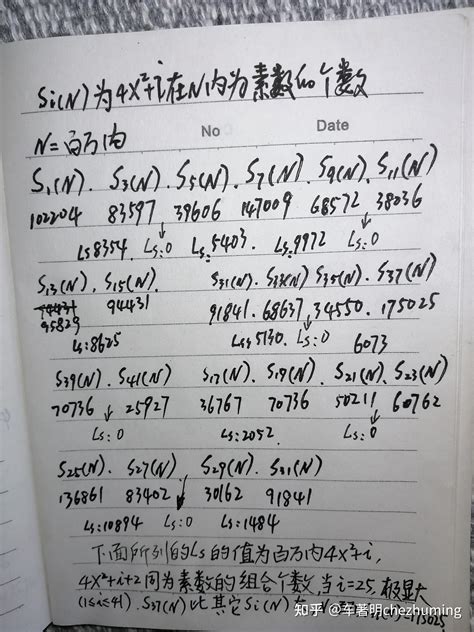 Si(N)为4X²+i在N内为素数的个数
N=百万内 No Date
S₁(N). S₃(N). S₅(N). S₇(N). S₉(N). S₁₁(N)
102204 83597 39606 147009 68572 38036
Ls8354 Ls:0 Ls:5403. Ls:9972 Ls:0
S₁₃(N). S₁₅(N) S₃₁(N). S₃₃(N) S₃₅(N). S₃₇(N)
94431 94431 91841. 68637 34550. 175025
95829
Ls:8625 Ls:5130. Ls:0 6073
S₃₉(N) S₄₁(N) S₁₇(N) S₁₉(N) S₂₁(N) S₂₃(N)
70736 25927 36767 70736 50211 60762
Ls:0 Ls:2052. Ls:0
S₂₅(N) S₂₇(N) S₂₉(N). S₃₁(N)
136861 83402 30162 91841
Ls:10894 Ls:0 Ls:1484
下面所列的Ls的值为百万内4X²+i,
4X²+i+2同为素数的组合个数,当i=25,极显大
(1≤i≤41). S₃₇(N)比其它Si(N)
知乎 @车著明chezhuming